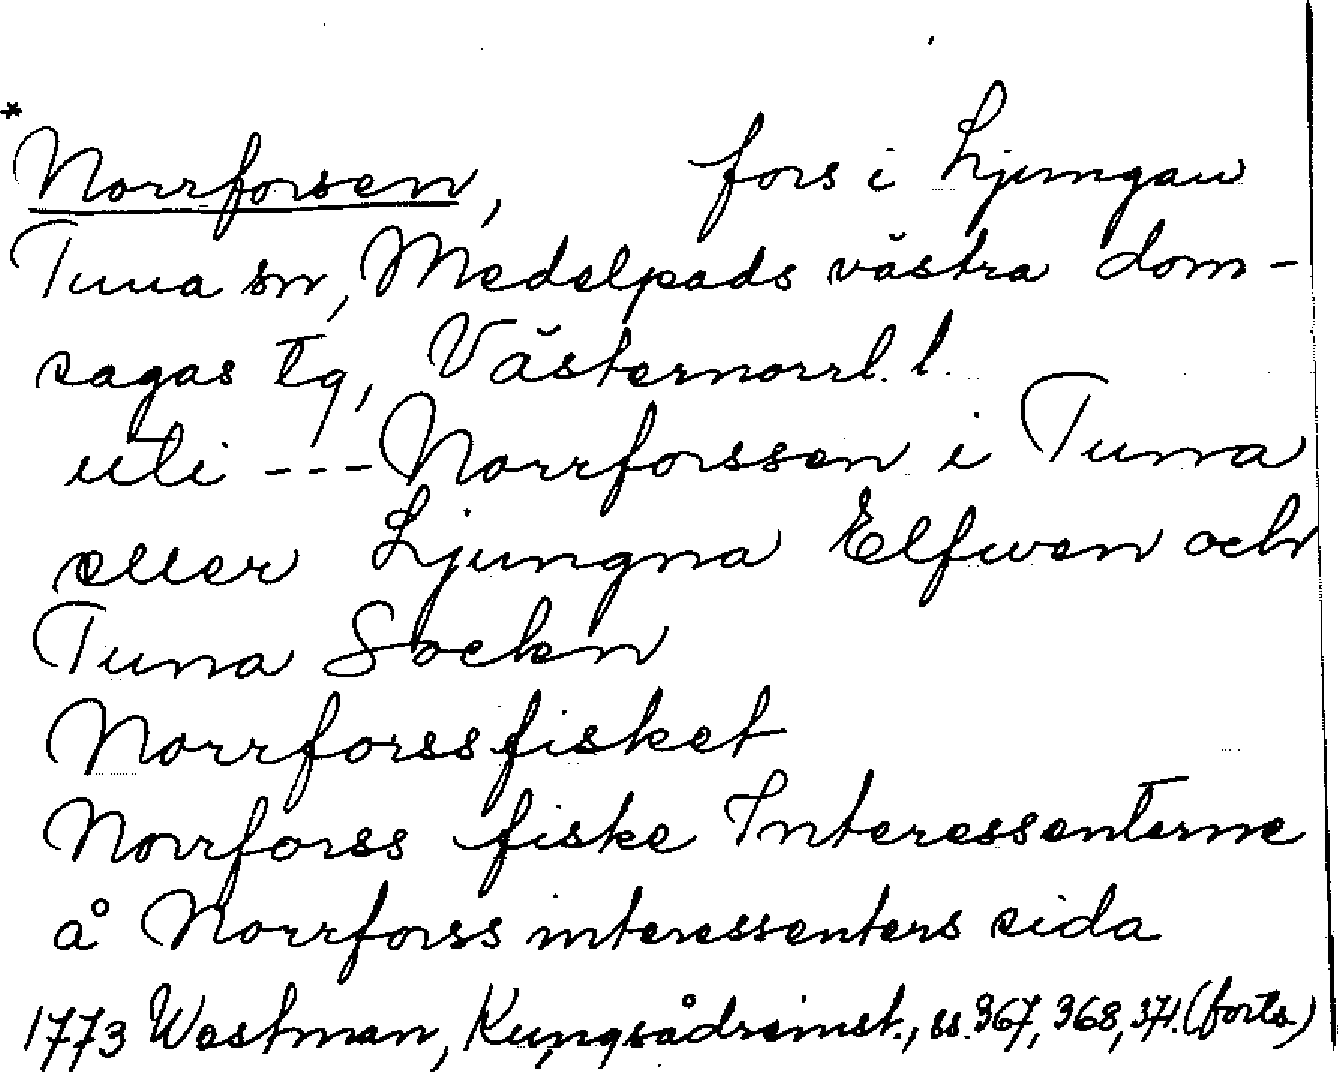 *Norrforsen, fors i Ljungan
Tuna sn, Medelpads västra dom-
sagas tg, Västernorrl. l.
uti --- Norrforssen i Tuna
eller Ljungna Elfwen och
Tuna Sockn
Norrforssfisket
Norrforss fiske Interessenterne
å Norrforss interessenters sida
1773 Westman, Kungsådreinst., ss. 367, 368, 371. (forts.)